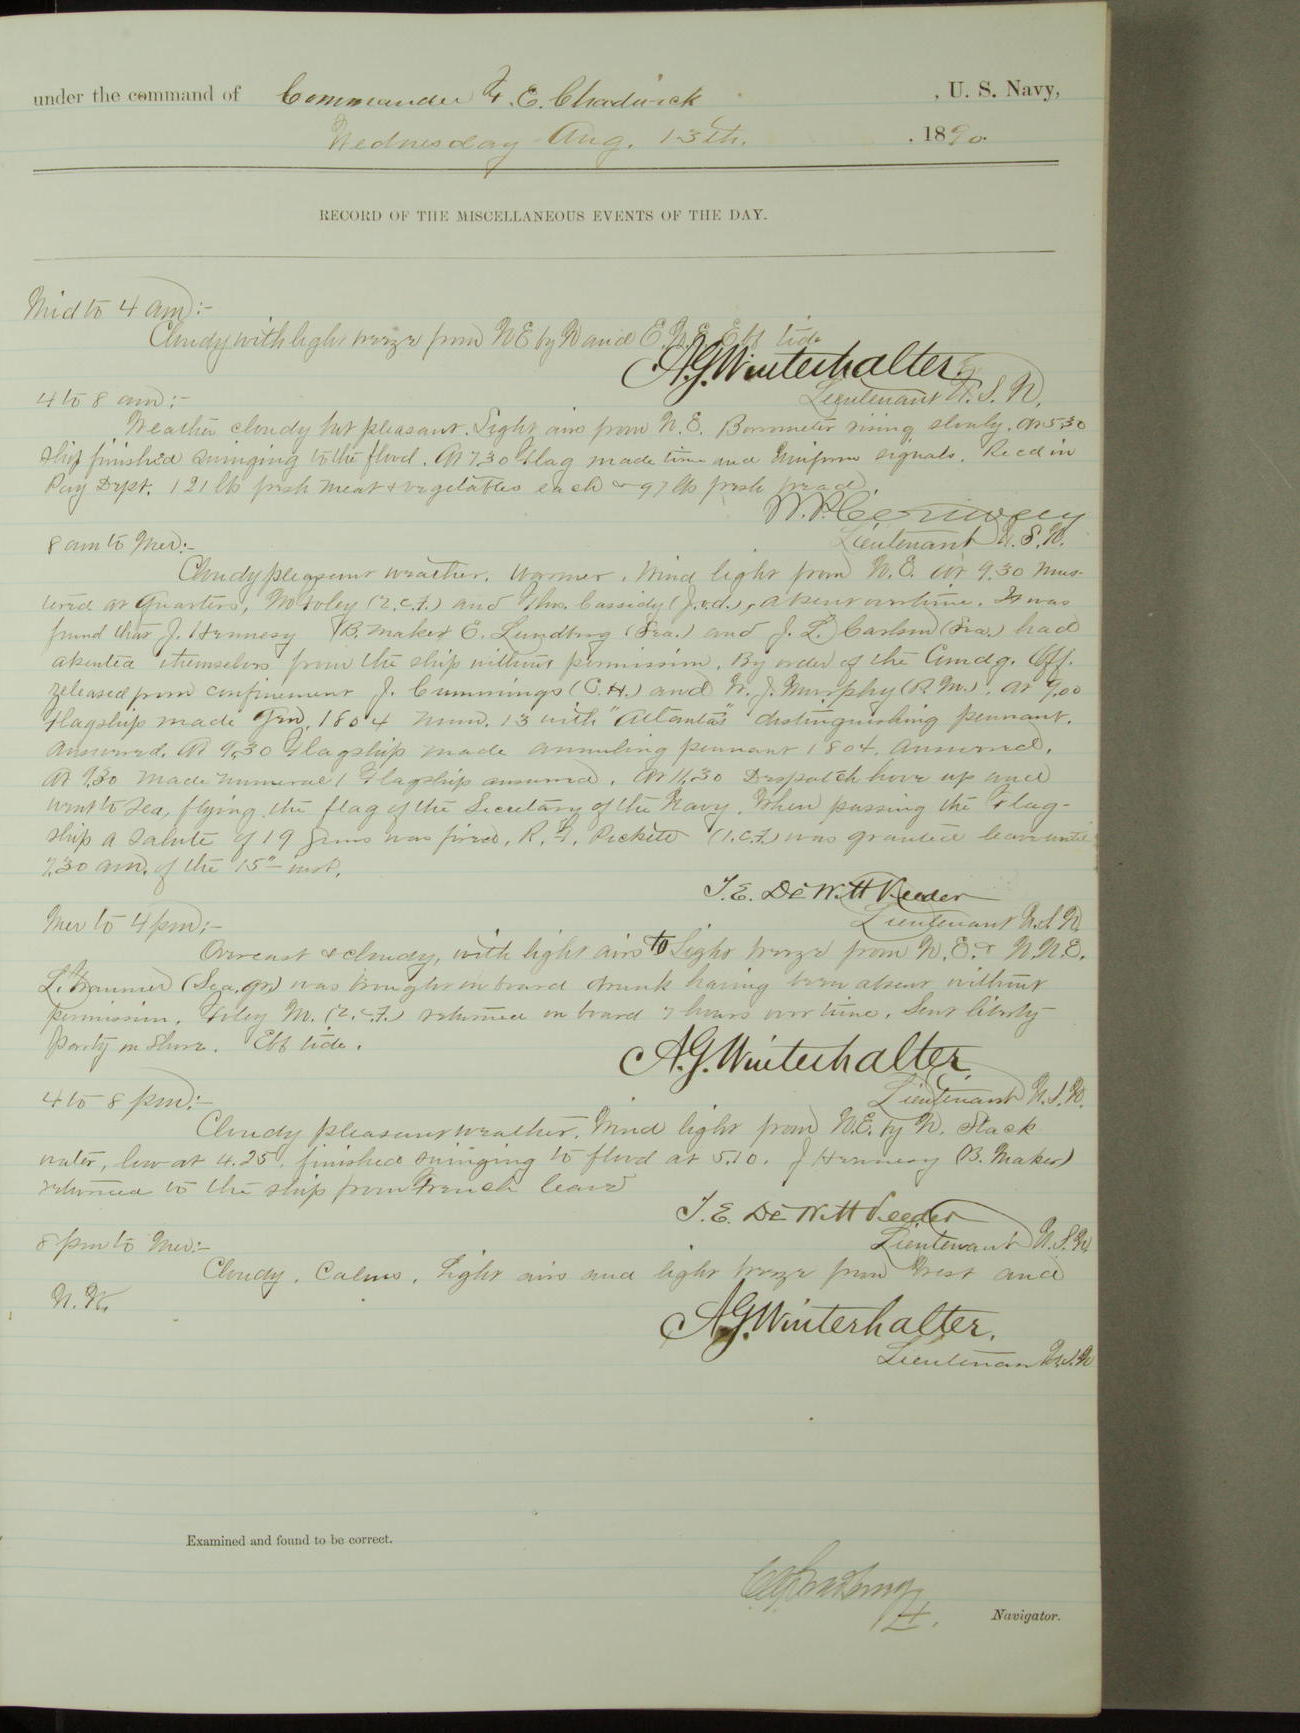 under the command of Commander F. E. Chadwick, U. S. Navy,
Wednesday Aug. 13th, 1890.
RECORD OF THE MISCELLANEOUS EVENTS OF THE DAY.
Mid to 4 am:-
Cloudy with light breeze from NE by N and E.N.E. Ebb tide
A.G. Winterhalter.
Lieutenant U.S.N.
4 to 8 am:-
Weather cloudy but pleasant. Light airs from N.E. Barometer rising slowly. At 5.30
ship finished swinging to the flood. At 7.30 Flag made time and Uniform signals. Recd in
Pay Dept. 121 lb fresh meat & vegetables each & 97 lb fresh bread.
Lieutenant U.S.N.
8 am to Mer:-
Cloudy pleasant weather. Warmer. Wind light from N.E. At 9.30 mus-
tered at Quarters, M Foley (2.c.f.) and Thos. Cassidy absent overtime. It was
found that J. Hennesy (B. Maker) E. Lundberg (Sea.) and J. L. Carlson (Sea.) had
absented themselves from the ship without permission. By order of the Comdg. Off.
released from confinement J. Cummings (C.H.) and W. J. Murphy (R.M.). At 9.00
flagship made Gen. 1804 num. 13 with "Atlanta's" distinguishing pennant.
Answered. At 9.30 Flagship made annuling pennant 1804. Answered.
At 9.30 made numeral 1 Flagship answered. At 11.30 Despatch hove up and
went to sea, flying the flag of the Secretary of the Navy. When passing the Flag-
ship a salute of 19 guns was fired. R. F. Pickett (1.c.f.) was granted leave until
7.30 am. of the 15" inst.
T.E. DeWitt Veeder
Lieutenant U.S.N.
Mer to 4 pm:-
Overcast & cloudy, with light airs to Light breeze from N.E. & N.N.E.
(Sea. gr.) was brought on board drunk having been absent without
permission. Foley M. (2.c.f.) returned on board 7 hours over time. Sent liberty
party on shore. Ebb tide.
A.G. Winterhalter
Lieutenant U.S.N.
4 to 8 pm:-
Cloudy pleasant weather. Wind light from N.E. by N. Slack
water, low at 4.25, finished swinging to flood at 5.10. J Hennesey (B. Maker)
returned to the ship from French leave
T.E. DeWitt Veeder
Lieutenant U.S.N.
8 pm to Mid:-
Cloudy. Calms. Light airs and light breeze from West and
N.W.
A.G. Winterhalter.
Lieutenant U.S.N
Examined and found to be correct.
Navigator.